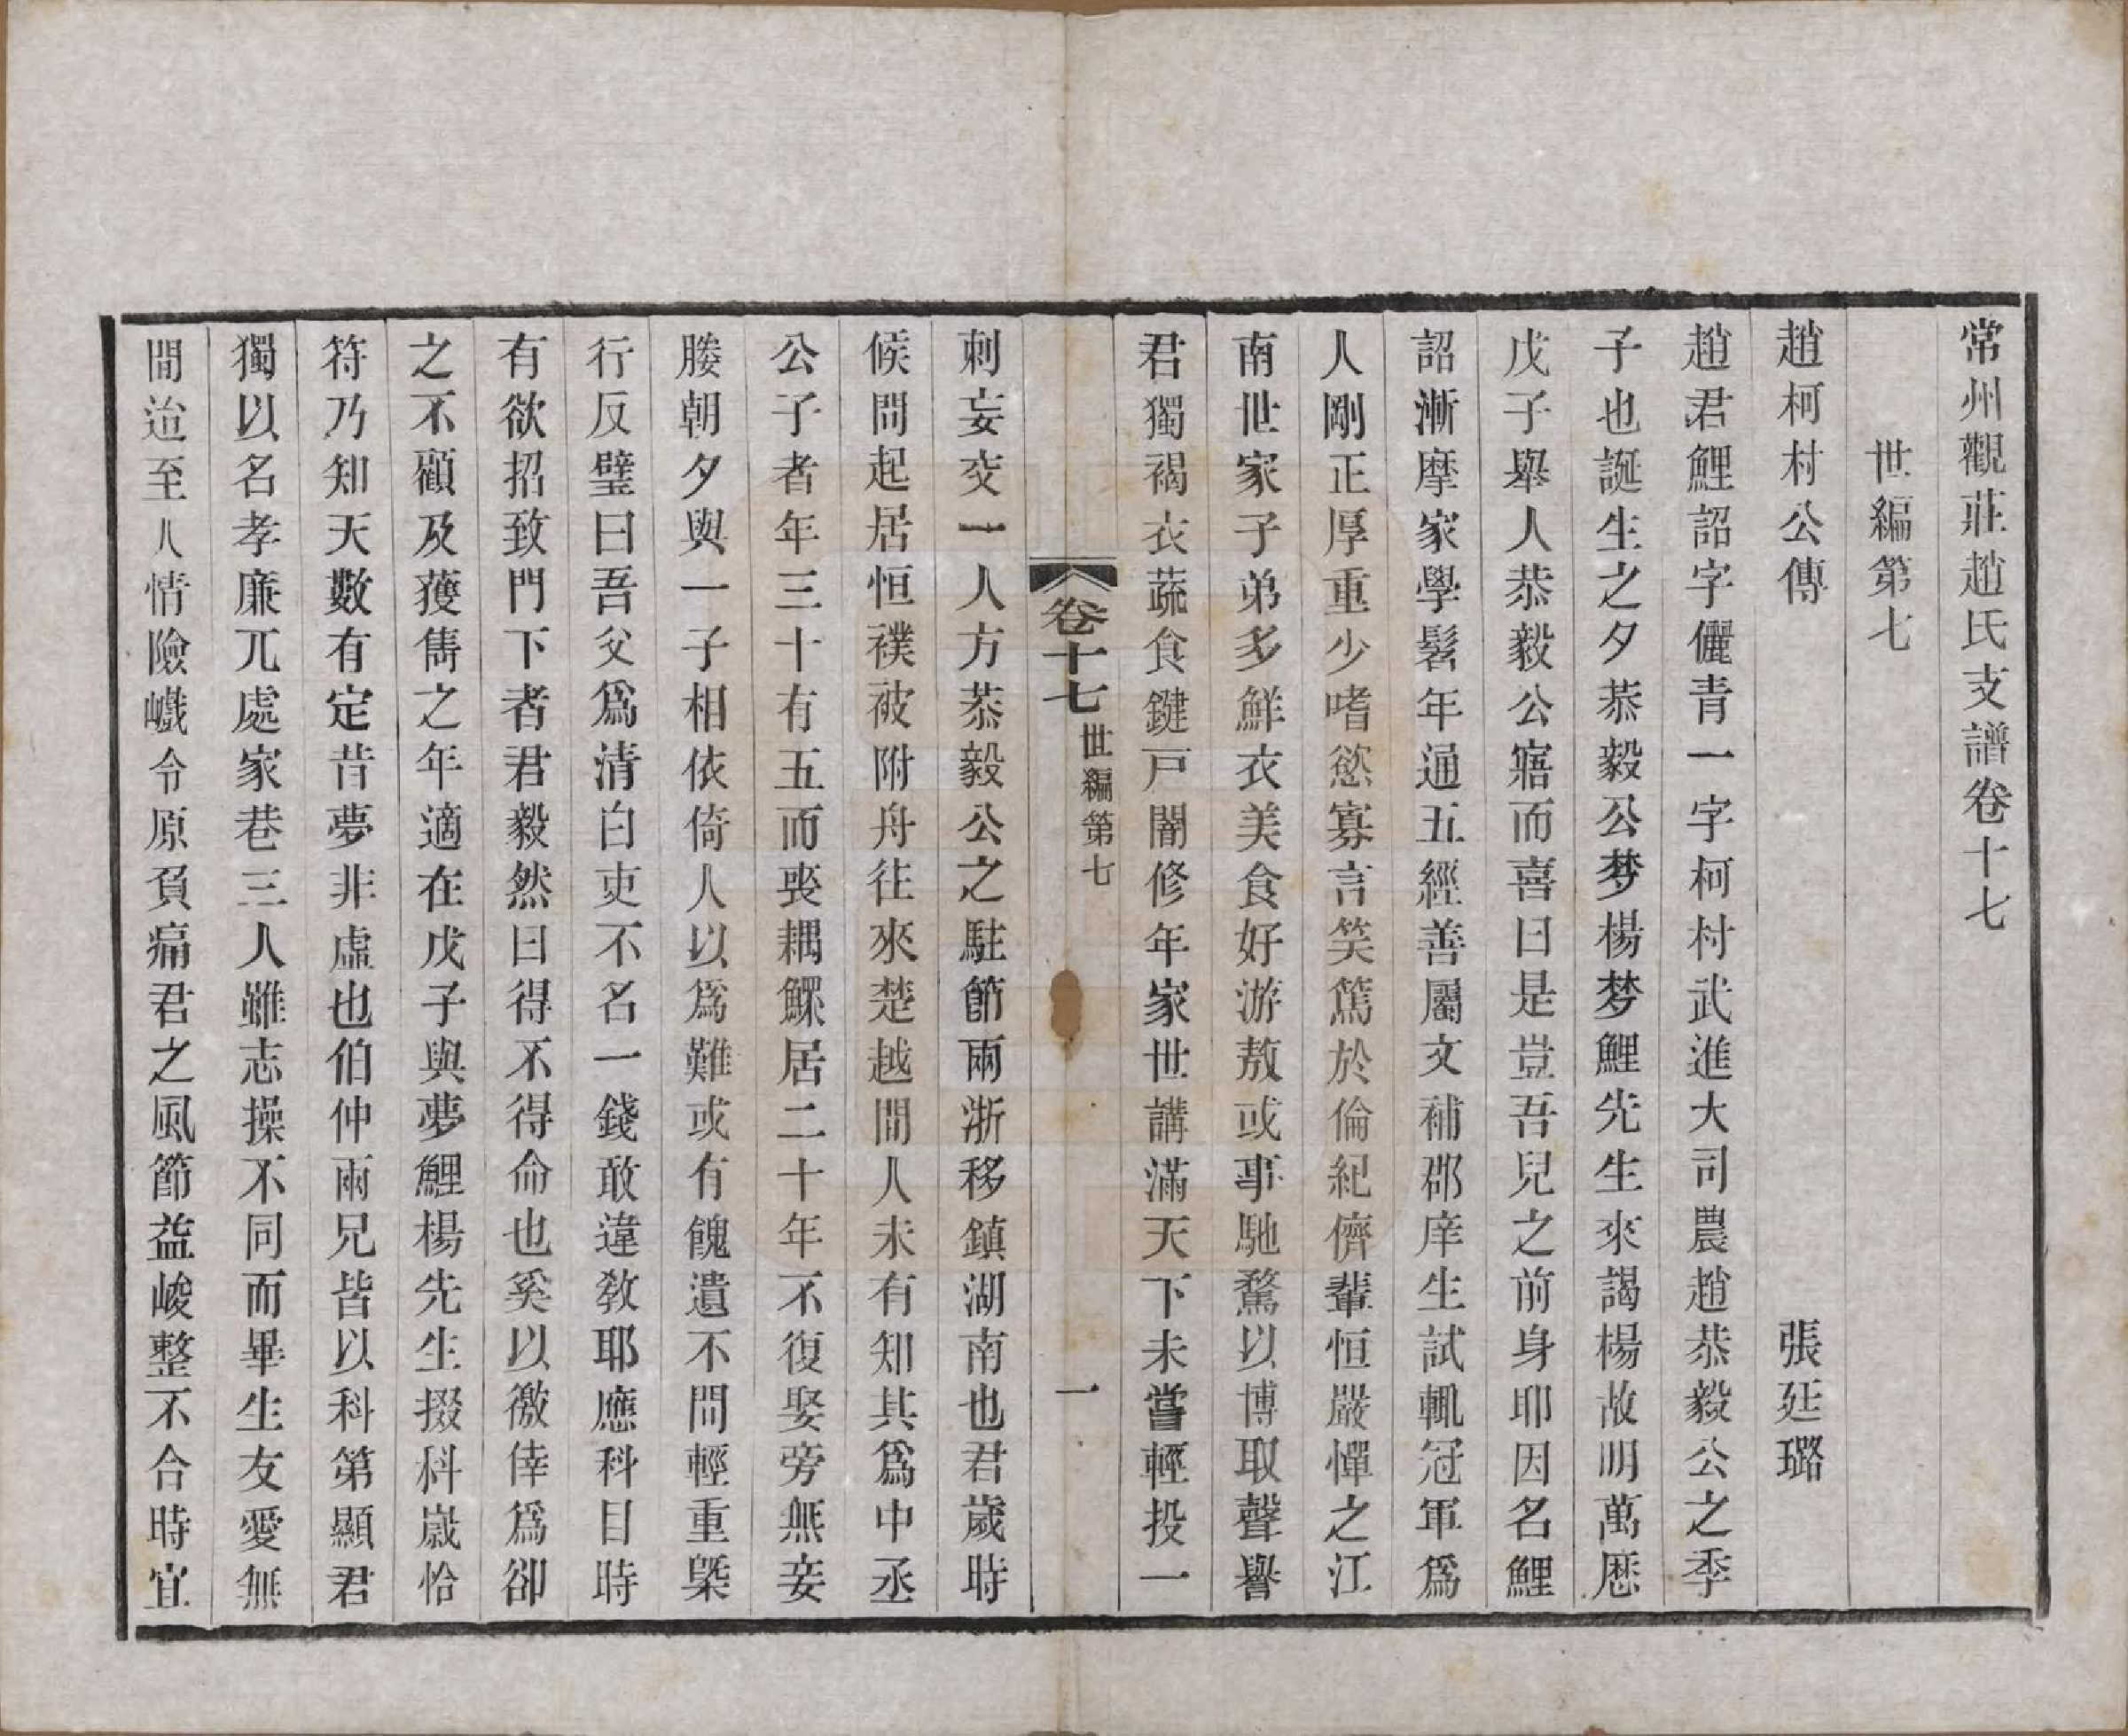 常州觀莊趙氏支譜卷十七
世編第七
趙柯村公傳　張廷璐
趙君鯉詔字儷青一字柯村武進大司農趙恭毅公之季
子也誕生之夕恭毅公梦楊梦鯉先生來謁楊故明萬厯
戊子舉人恭毅公寤而喜曰是豈吾兒之前身耶因名鯉
詔漸摩家學髫年通五經善屬文補郡庠生試輒冠軍爲
人剛正厚重少嗜慾寡言笑篤於倫紀儕輩恒嚴憚之江
南世家子弟多鮮衣美食好游敖或事馳騖以博取聲譽
君獨褐衣蔬食鍵戸闇修年家世講滿天下未嘗輕投一
卷十七　世編第七　一
刺妄交一人方恭毅公之駐節兩浙移鎮湖南也君歲時
候問起居恒襆被附舟往來楚越間人未有知其爲中丞
公子者年三十有五而喪耦鰥居二十年不復娶旁無妾
媵朝夕與一子相依倚人以爲難或有餽遺不問輕重槩
行反璧曰吾父爲清白吏不名一錢敢違敎耶應科目時
有欲招致門下者君毅然曰得不得命也奚以徼倖爲卻
之不顧及獲雋之年適在戊子與夢鯉楊先生掇科嵗恰
符乃知天數有定昔夢非虛也伯仲兩兄皆以科第顯君
獨以名孝廉兀處家巷三人雖志操不同而畢生友愛無
間迨至人情險巇令原負痛君之風節益峻整不合時宜